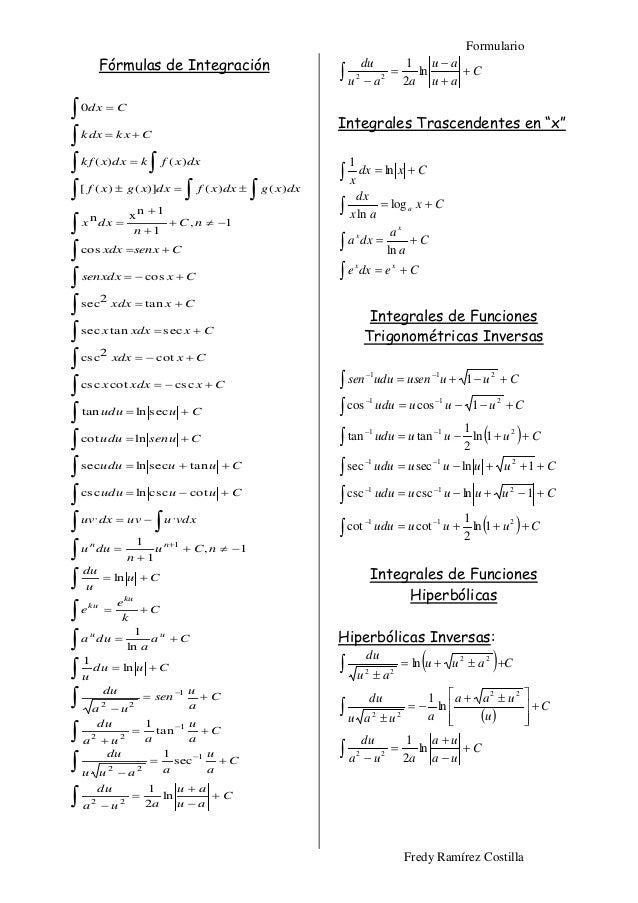 Formulario
Fórmulas de Integración
∫ 0dx = C
∫ k dx = k x + C
∫ kf(x)dx = k ∫ f(x)dx
∫ [f(x) ± g(x)]dx = ∫ f(x)dx ± ∫ g(x)dx
∫ xⁿ dx = (x^(n + 1))/(n + 1) + C, n ≠ −1
∫ cos xdx = senx + C
∫ senxdx = − cos x + C
∫ sec² xdx = tan x + C
∫ sec x tan xdx = sec x + C
∫ csc² xdx = − cot x + C
∫ csc x cot xdx = − csc x + C
∫ tan udu = ln|sec u| + C
∫ cot udu = ln|senu| + C
∫ sec udu = ln|sec u + tan u| + C
∫ csc udu = ln|csc u − cot u| + C
∫ uv' dx = uv − ∫ u' vdx
∫ uⁿ du = 1/(n + 1) u^(n+1) + C, n ≠ −1
∫ du/u = ln|u| + C
∫ e^(ku) = e^(ku)/k + C
∫ a^u du = 1/(ln a) a^u + C
∫ 1/u du = ln|u| + C
∫ du/√(a² − u²) = sen⁻¹ u/a + C
∫ du/(a² + u²) = 1/a tan⁻¹ u/a + C
∫ du/(u√(u² − a²)) = 1/a sec⁻¹ u/a + C
∫ du/(a² − u²) = 1/(2a) ln|(u + a)/(u − a)| + C
∫ du/(u² − a²) = 1/(2a) ln|(u − a)/(u + a)| + C
Integrales Trascendentes en “x”
∫ 1/x dx = ln|x| + C
∫ dx/(x ln a) = logₐ x + C
∫ a^x dx = a^x/(ln a) + C
∫ e^x dx = e^x + C
Integrales de Funciones
Trigonométricas Inversas
∫ sen⁻¹ udu = usen⁻¹ u + √(1 − u²) + C
∫ cos⁻¹ udu = u cos⁻¹ u − √(1 − u²) + C
∫ tan⁻¹ udu = u tan⁻¹ u − 1/2 ln(1 + u²) + C
∫ sec⁻¹ udu = u sec⁻¹ u − ln|u + √(u² + 1)| + C
∫ csc⁻¹ udu = u csc⁻¹ u − ln|u + √(u² − 1)| + C
∫ cot⁻¹ udu = u cot⁻¹ u + 1/2 ln(1 + u²) + C
Integrales de Funciones
Hiperbólicas
Hiperbólicas Inversas:
∫ du/√(u² ± a²) = ln(u + √(u² ± a²)) + C
∫ du/(u√(a² ± u²)) = − 1/a ln[(a + √(a² ± u²))/(u)] + C
∫ du/(a² − u²) = 1/(2a) ln|(a + u)/(a − u)| + C
Fredy Ramírez Costilla